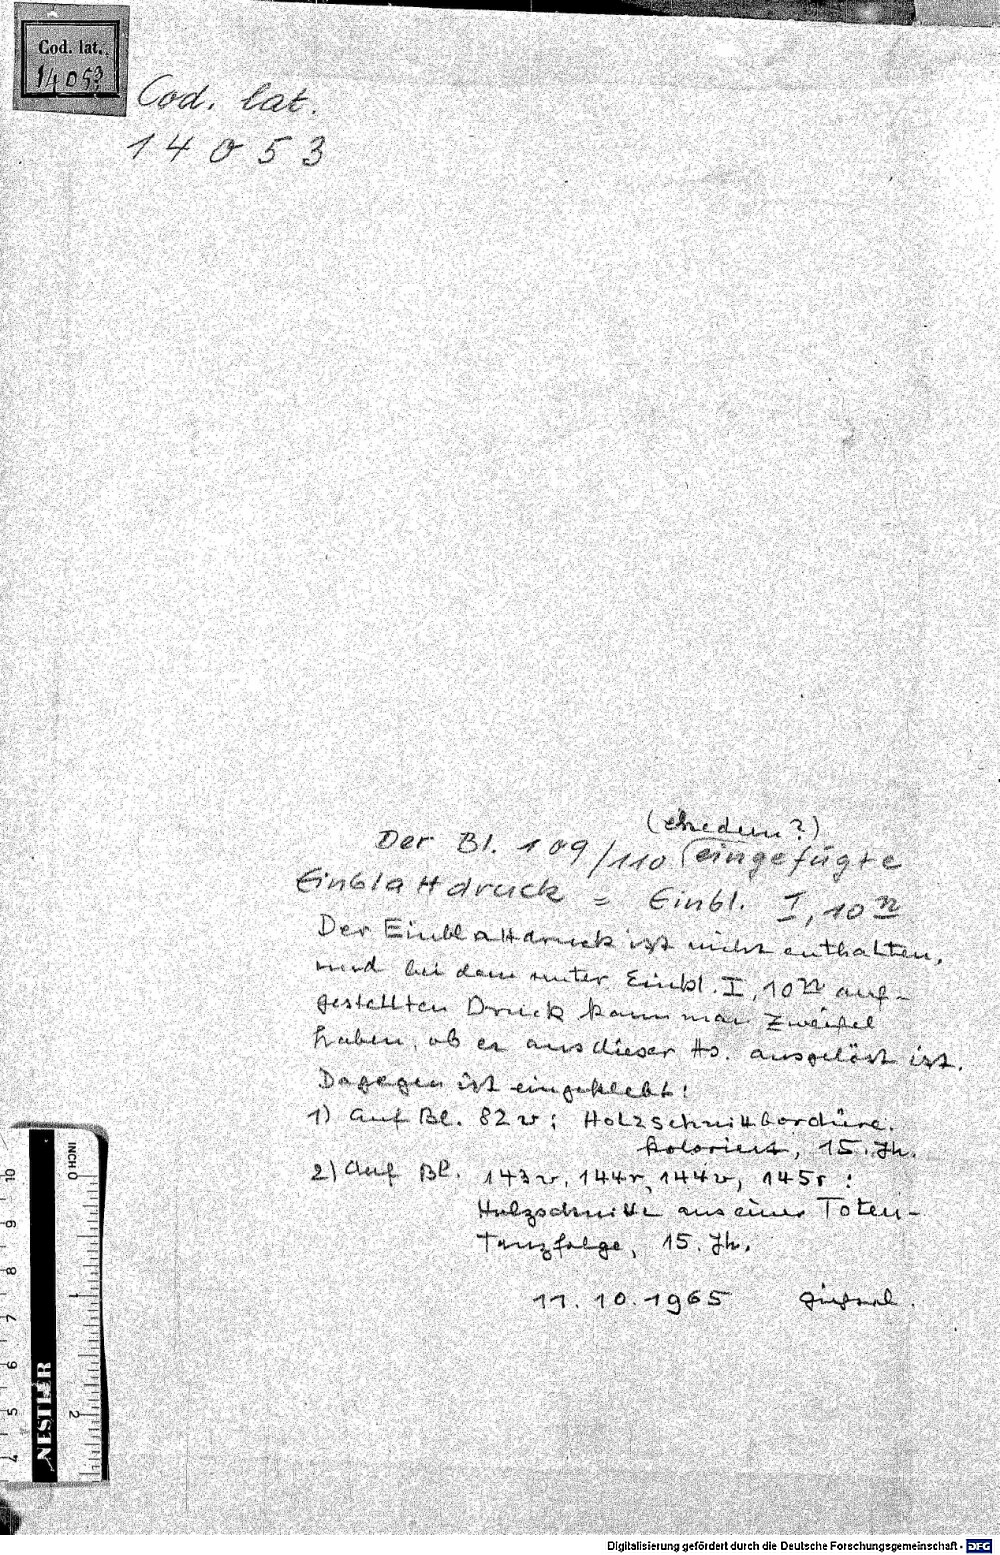 Cod. lat.
14053
Cod. lat.
14053
(ehedem?)
Der Bl. 109/110 eingefügte
Einblattdruck = Einbl. I, 10 n
Der Einblattdruck ist nicht enthalten,
und bei dem unter Einbl. I, 10 n auf-
gestellten Druck kann man Zweifel
haben, ob er aus dieser Hs. ausgelöst ist.
Dagegen ist eingeklebt:
1) auf Bl. 82v: Holzschnittbordüre,
koloriert, 15. Jh.
2) Auf Bl. 143v, 144r, 144v, 145r:
Holzschnitte aus einer Toten-
Tanzfolge, 15. Jh.
11. 10. 1965
INCH 0
1
2
10
9
8
7
6
5
4
NESTLER
Digitalisierung gefördert durch die Deutsche Forschungsgemeinschaft - DFG